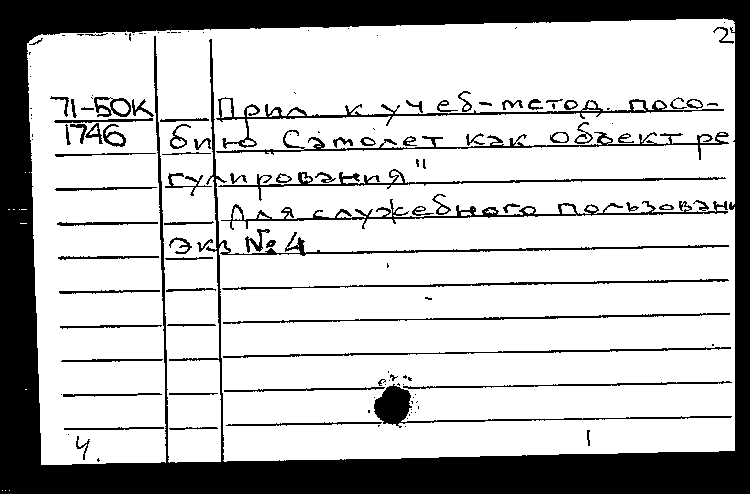 2
71-БОК Прил. к учеб-метод. посо-
1746 бию „Самолет как объект ре
гулирования"
Для служебного пользовани
экз № 4.
ч. 1